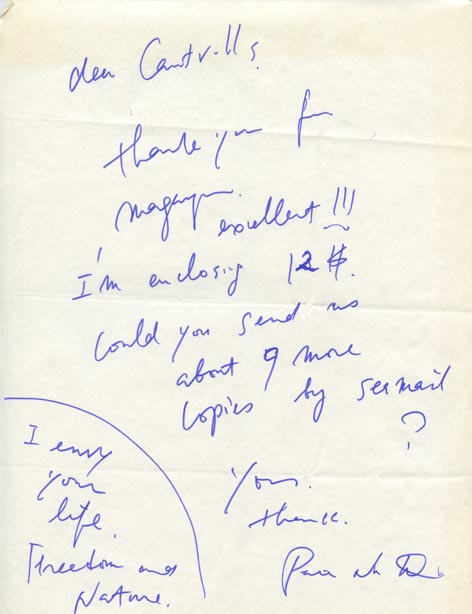 dear Cantrills,
thank you for
magazine.
excellent!!!
I'm enclosing 12 $.
Could you send us
about 9 more
copies by seamail
?
Yours.
thank.
I envy
your
life.
Freedom and
Nature.